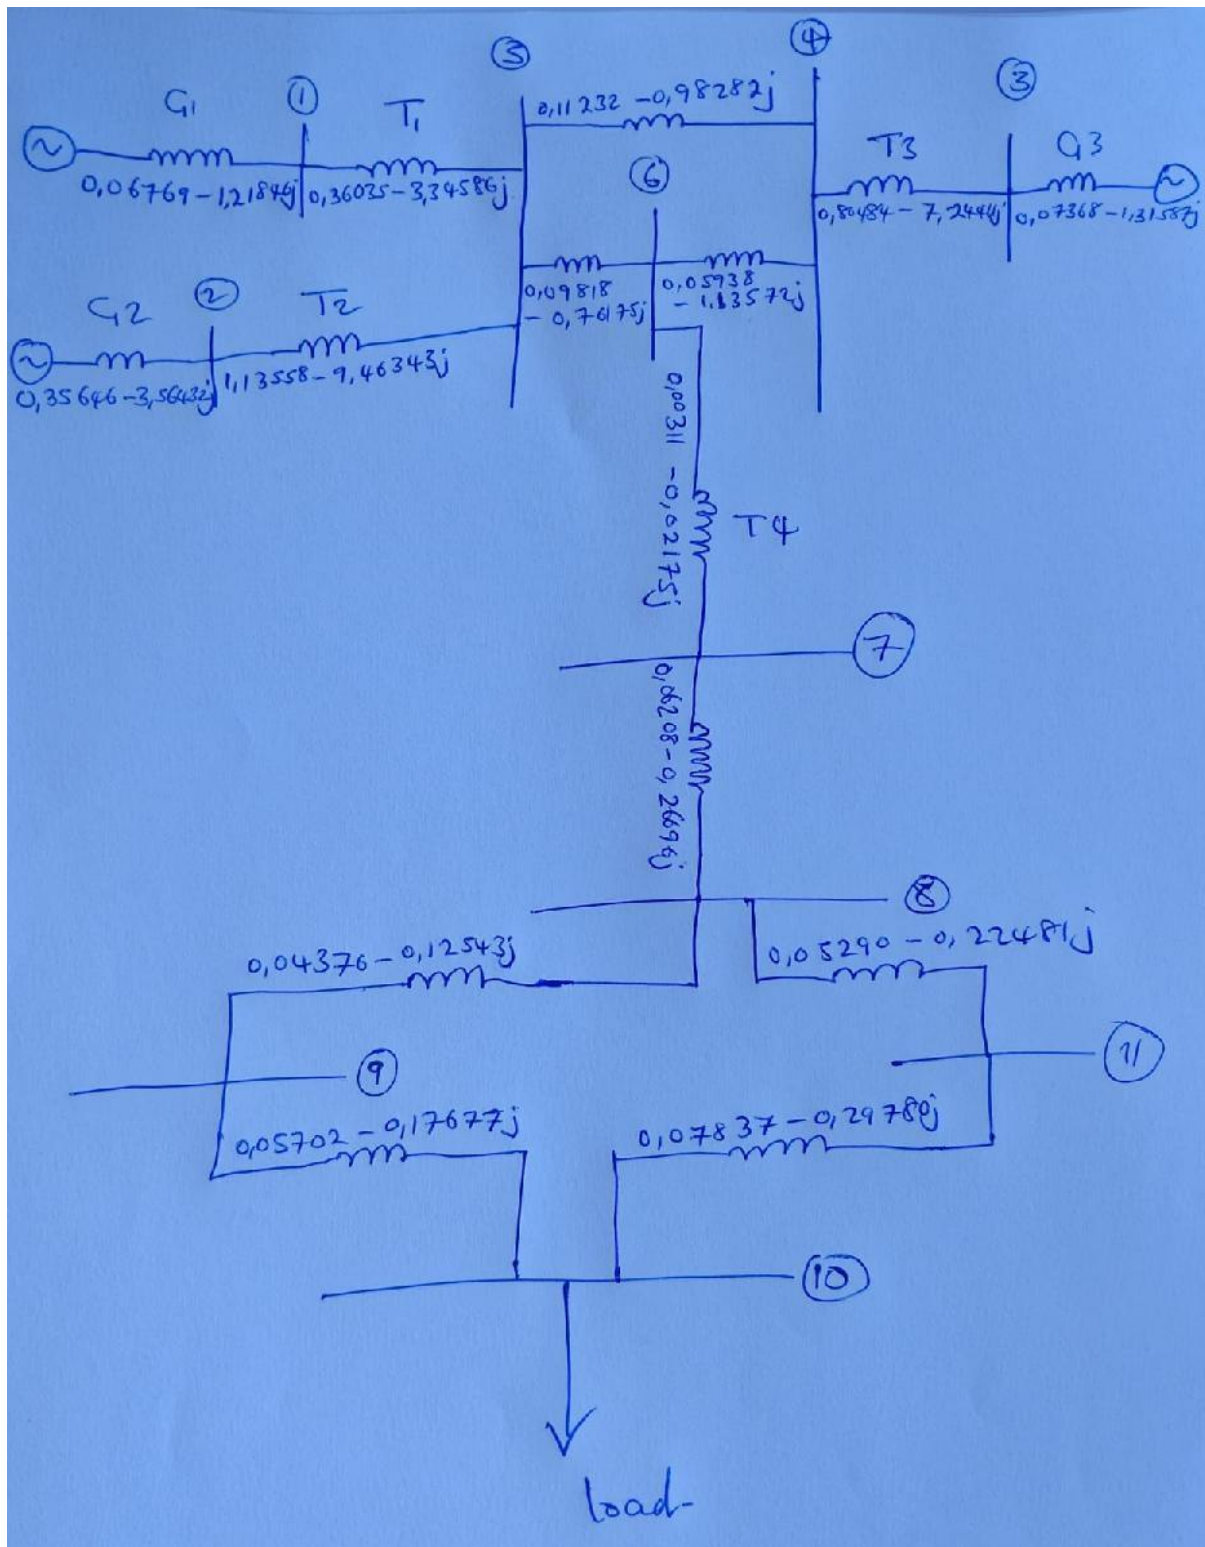 ③
④
③
G1
①
T1
0,11232 -0,98282j
⑥
T3
G3
0,06769-1,21846j
0,36035-3,34586j
0,80484-7,2444j
0,07368-1,31587j
G2
②
T2
0,09818
-0,76175j
0,05938
-1,13572j
0,35646-3,56432j
1,13558-9,46343j
0,00311 -0,02175j
T4
⑦
0,06208-0,26696j
⑧
0,04376-0,12543j
0,05290-0,22481j
⑨
⑪
0,05702-0,17677j
0,07837-0,29780j
⑩
load-